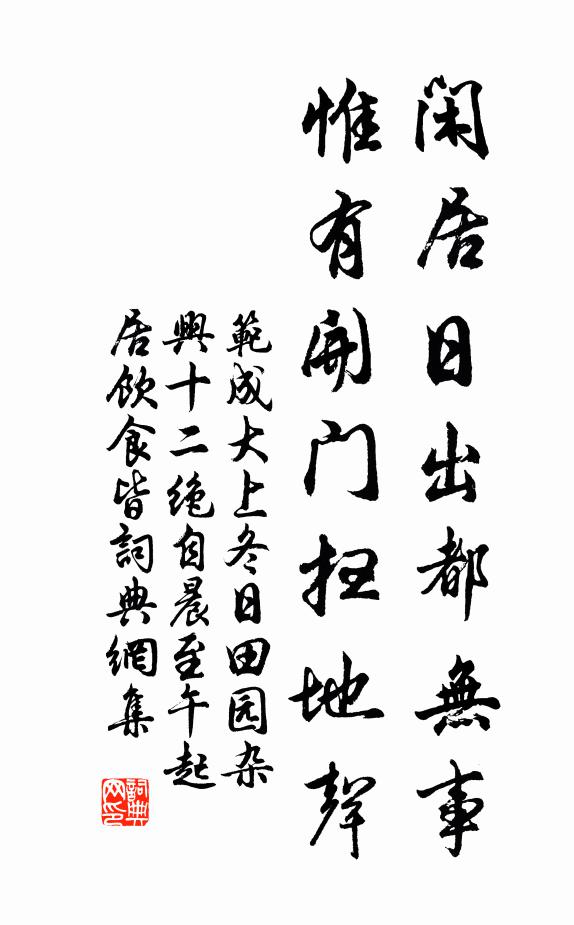 闲居日出都無事
惟有開门扫地聲
範成大上冬日田园杂
興十二绝自晨至午起
居飲食皆詞典網集
詞典
网印